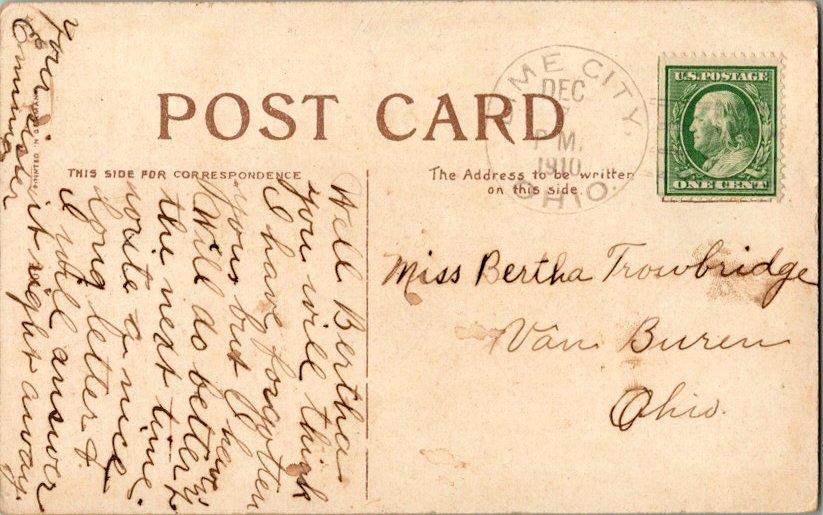 POST CARD
THIS SIDE FOR CORRESPONDENCE
The Address to be written
on this side.
OME CITY.
DEC
P M.
1910
OHIO.
U.S. POSTAGE
ONE CENT
Miss Bertha Trowbridge
Van Buren
Ohio.
Well Bertha
you will think
I have forgotten
yous but I haven
Will do better
the next time.
a nice
Long letter &
I will answer
it right away.
your sister
PRINTED IN